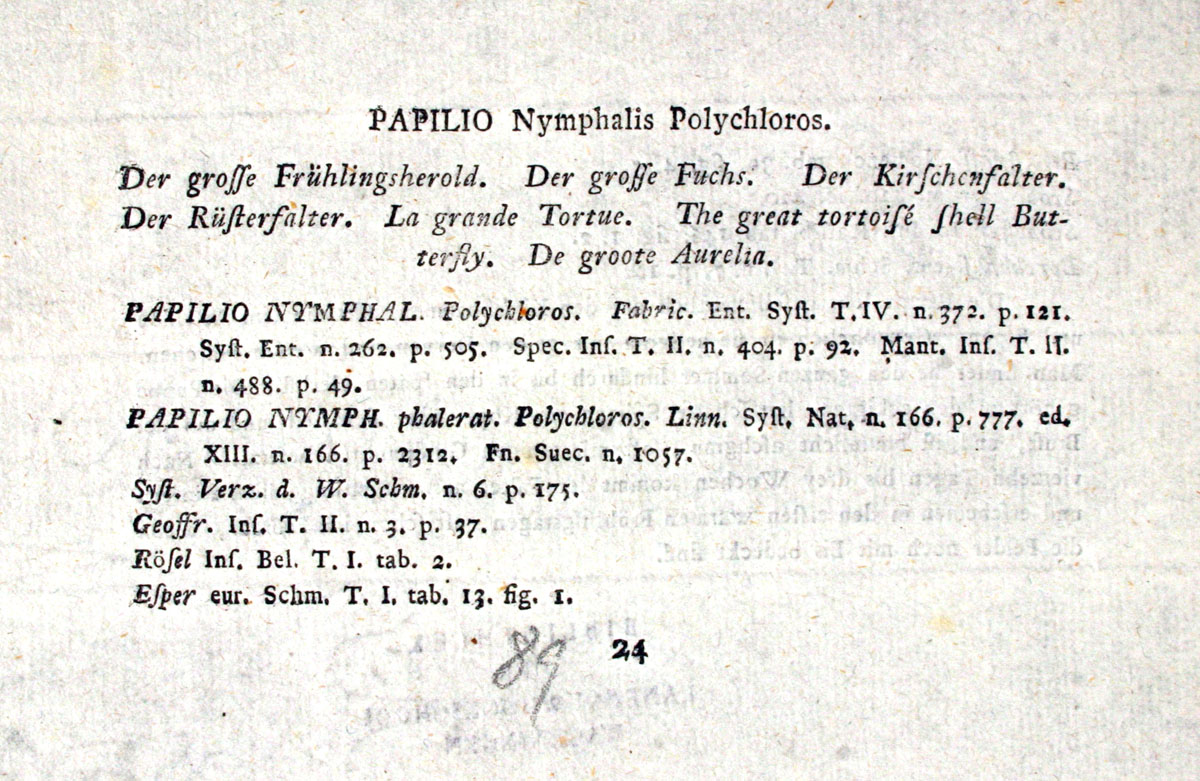 PAPILIO Nymphalis Polychloros.
Der groſſe Frühlingsherold. Der groſſe Fuchs. Der Kirſchenfalter.
Der Rüſterfalter. La grande Tortue. The great tortoiſé ſhell But-
terfly. De groote Aurelia.
PAPILIO NYMPHAL. Polychloros. Fabric. Ent. Syſt. T.IV. n. 372. p. 121.
Syſt. Ent. n. 262. p. 505. Spec. Inſ. T. II. n. 404. p. 92. Mant. Inſ. T. II.
n. 488. p. 49.
PAPILIO NYMPH. phalerat. Polychloros. Linn. Syſt. Nat. n. 166. p. 777. ed.
XIII. n. 166. p. 2312. Fn. Suec. n. 1057.
Syſt. Verz. d. W. Schm. n. 6. p. 175.
Geoffr. Inſ. T. II. n. 3. p. 37.
Röſel Inſ. Bel. T. I. tab. 2.
Eſper eur. Schm. T. I. tab. 13. fig. 1.
89 24